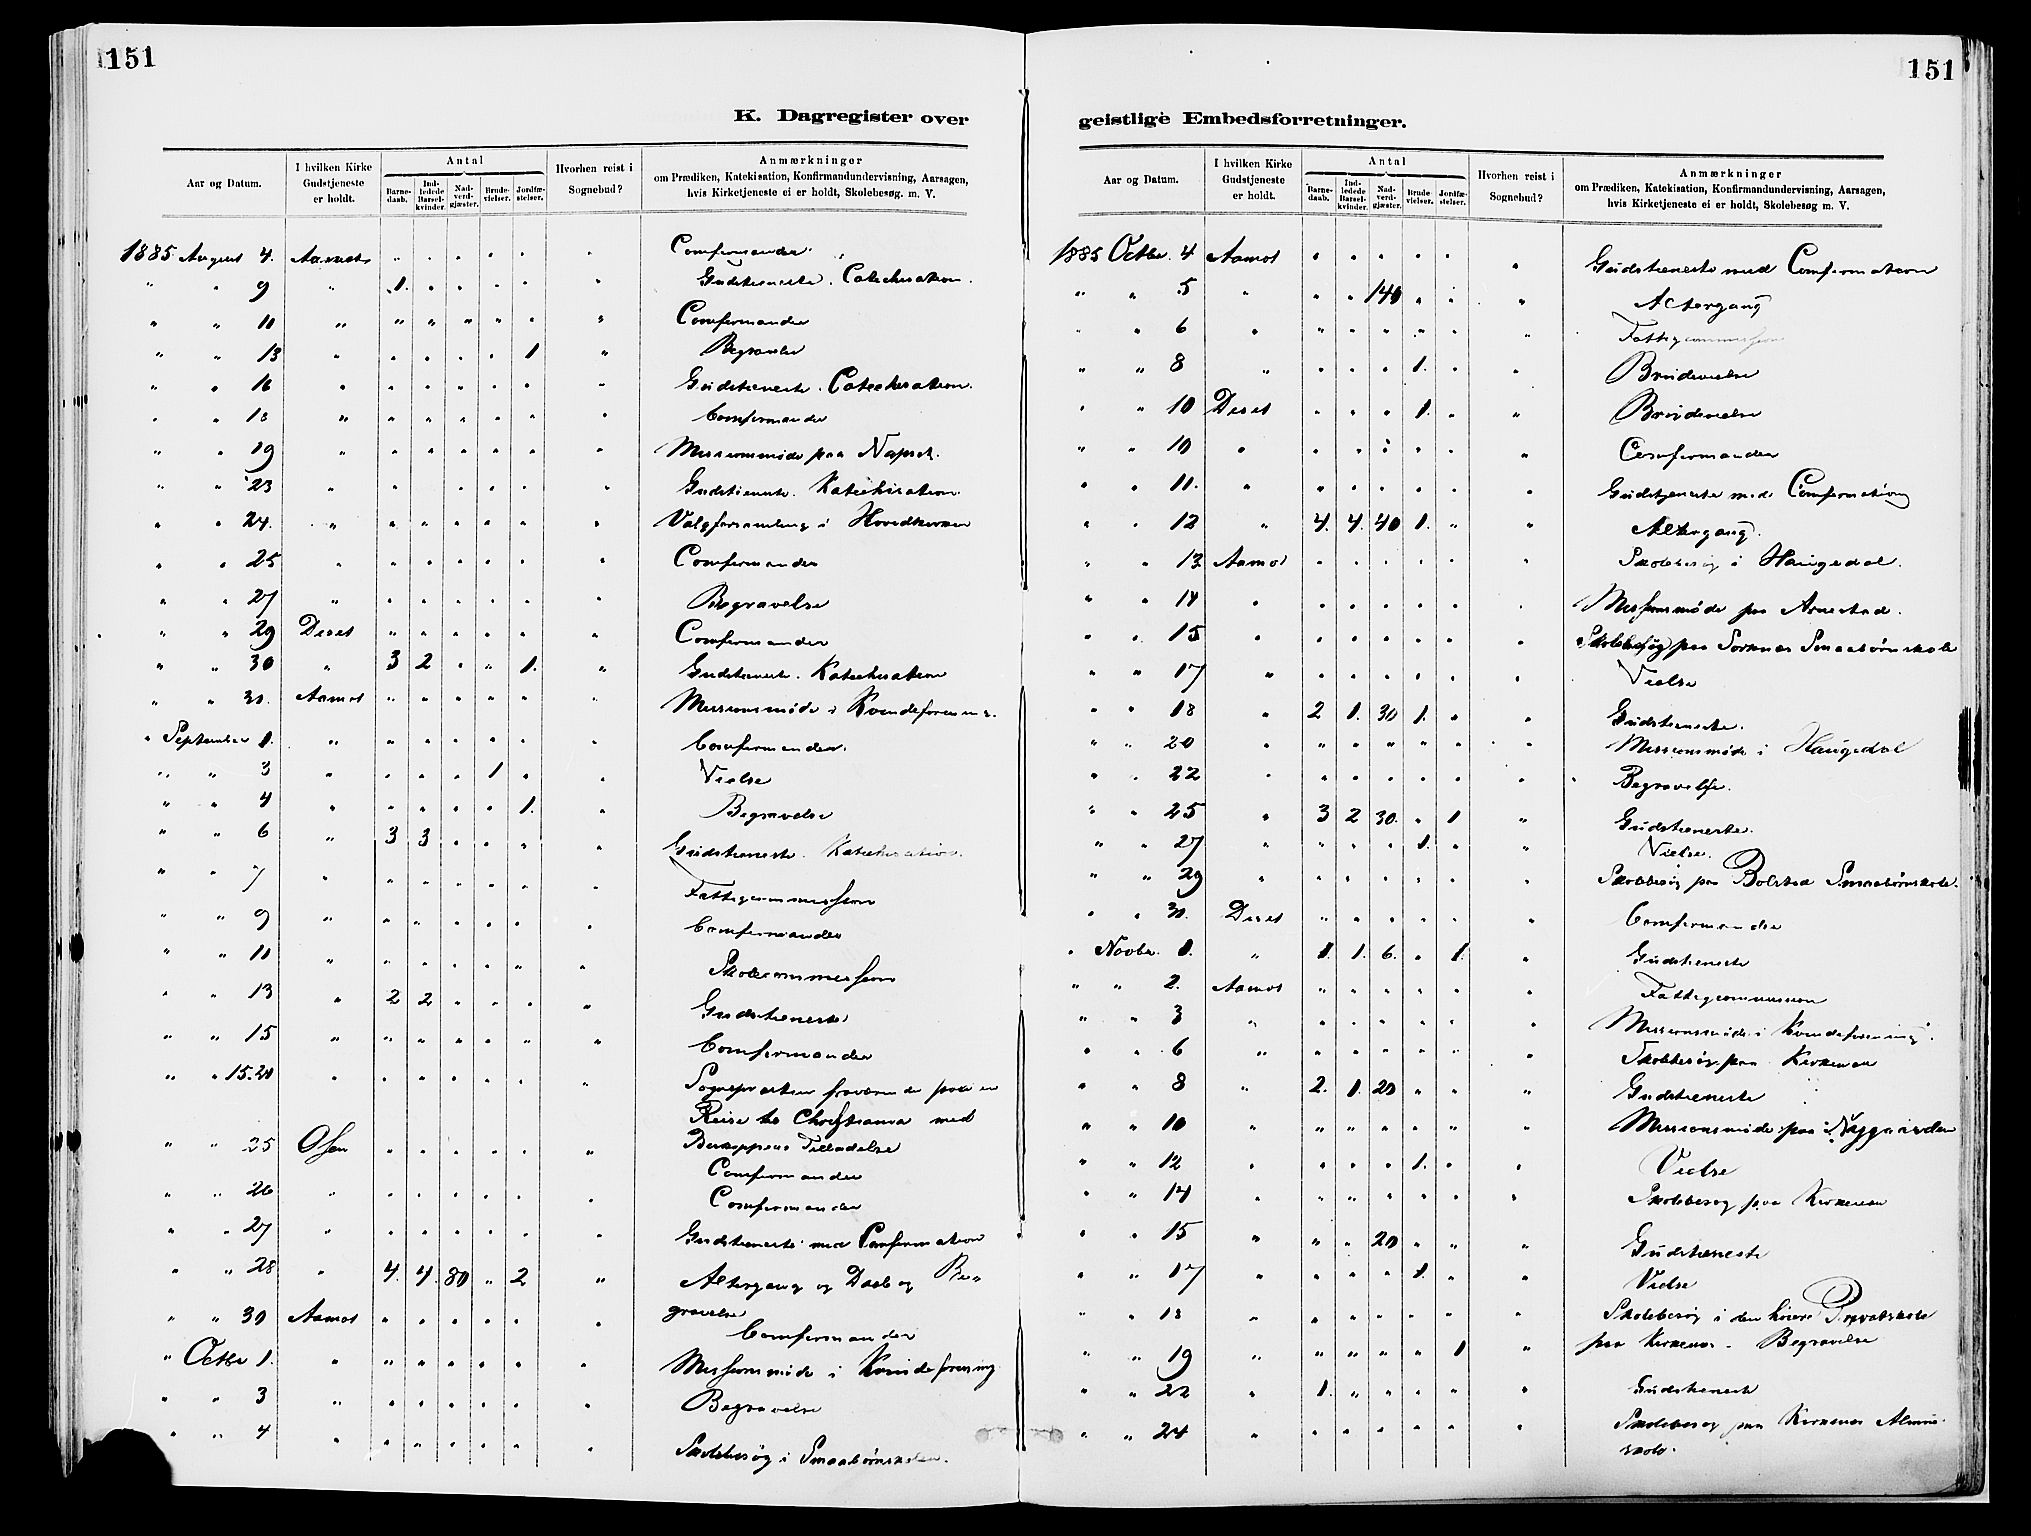 151
K. Dagregister over
Aar og Datum. I hvilken Kirke Gudstjeneste er holdt. Antal Barnedaab. Indledede Barselkvinder. Nadverdgjæster. Brudevielser. Jordfæstelser. Hvorhen reist i Sognebud? Anmærkninger om Prædiken, Katekisation, Konfirmandundervisning, Aarsagen, hvis Kirketjeneste ei er holdt, Skolebesøg. m. V.
1885 August 4. Aamot " " " " " " Comfirmander
" " 9 " 1. " " " " " Gudstieneste. Catechisation.
" " 11 " " " " " " " Comfirmander
" " 13 " " " " " 1 " Begravelse
" " 16 " " " " " " " Gudstieneste. Catechisation.
" " 18 " " " " " " " Comfirmander
" " 19 " " " " " " " Missionsmøde paa
" " 23 " " " " " " Gudstieneste. Katechisation.
" " 24. " " " " " " " Valgforsamling i Hovedkirken
" " 25 " " " " " " " Comfirmander
" " 27 " " " " " " " Begravelse
" " 29 Deset " " " " " " Comfirmander
" " 30 " 3 2 " " 1. " Gudstieneste. Katechisation
" " 31. Aamot " " " " " " Missionsmøde i Kvindeforening.
" September 1. " " " " " " " Comfirmander.
" " 3 " " " " 1 " " Vielse
" " 4 " " " " " 1. " Begravelse
" " 6 " 3 3 " " " " Gudstieneste. Katechisation.
" " 7 " " " " " " " Fattigcommission
" " 9 " " " " " " " Comfirmander
" " 11 " " " " " " " Skolecommission
" " 13 " 2 2 " " " " Gudstieneste
" " 15 " " " " " " " Comfirmander
" " 15.20 " " " " " " " Sognepresten fraværende paa en
Reise til Christiania med
" " 25 Osen " " " " " " Biskoppens Tilladelse
Comfirmander
" " 26 " " " " " " " Comfirmander
" " 27 " " " " " " " Gudstieneste med Comfirmation
" " 28 " 4. 4. 80 " 2 " Altergang og Daab og Be-
gravelse
" " 30 Aamot " " " " " " Comfirmander
" Octbr 1. " " " " " " " Missionsmøde i Kvindeforening
" " 3 " " " " " " " Begravelse
" " 4 " " " " " " " Skolebesøg i Smaabørnskolen.
151
geistlige Embedsforretninger.
Aar og Datum. I hvilken Kirke Gudstjeneste er holdt. Antal Barnedaab. Indledede Barselkvinder. Nadverdgjæster. Brudevielser. Jordfæstelser. Hvorhen reist i Sognebud? Anmærkninger om Prædiken, Katekisation, Konfirmandundervisning, Aarsagen, hvis Kirketjeneste ei er holdt, Skolebesøg m. V.
1885 Octbr. 4 Aamot " " " " " " Gudstieneste med Comfirmation
" " 5 " " " 140 " " " Altergang
" " 6 " " " " " " " Fattigcommission
" " 8 " " " " 1. " " Brudevielse
" " 10 Deset " " " 1. " " Brudevielse
" " 10 " " " " " " " Comfirmander
" " 11. " " " " " " " Gudstjeneste med Comfirmation
" " 12 " 4. 4. 40 1. " " Altergang.
" " 13 Aamot " " " " " " Skolebesøg i Haugedal.
" " 14 " " " " " " " Missionsmøde paa Arnestad.
" " 15 " " " " " " " Skolebesøg paa Sorknes Smaabørnskole
" " 17 " " " " " " " Vielse
" " 18 " 2 1. 30 1. " " Gudstieneste.
" " 20 " " " " " " " Missionsmøde i Haugedal
" " 22 " " " " " " " Begravelse.
" " 25 " 3 2 30. " 1 " Gudstieneste.
" " 27 " " " " 1. " " Vielse.
" " 29 " " " " " " " Skolebesøg paa Bolstad Smaabørnskole.
" " 31. Deset " " " " " " Comfirmander
" Novbr. 1. " 1. 1. 6. " 1. " Gudstieneste
" " 2. Aamot " " " " " " Fattigcommission
" " 3 " " " " " " " Missionsmøde i Kvindeforening.
" " 6 " " " " " " " Skolebesøg paa Kirkenær
" " 8 " 2. 1. 20 " " " Gudstieneste
" " 10 " " " " " " " Missionsmøde paa
" " 12 " " " " 1. " " Vielse
" " 14 " " " " " " " Skolebesøg paa Kirkenær
" " 15 " " " 20 " " " Gudstieneste
" " 17 " " " " 1. " " Vielse
" " 18 " " " " " " " Skolebesøg i den høiere Privatskole
" " 19 " " " " " 1 " paa Kirkenær. Begravelse
" " 22 " 1. " " " " " Gudstieneste
" " 24 " " " " " " " Skolebesøg paa Kirkenær Almue-
skole.